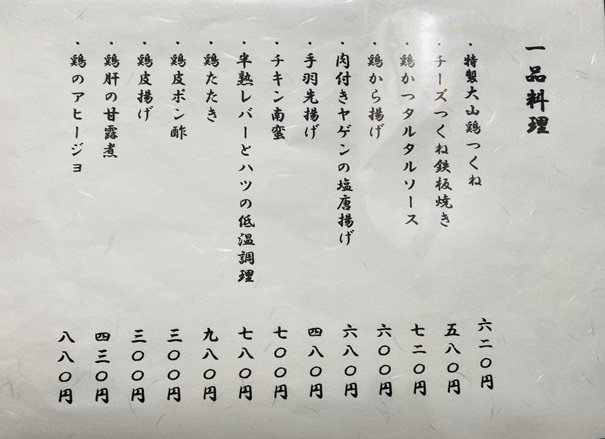 一品料理
・特製大山鶏つくね 六二〇円
・チーズつくね鉄板焼き 五八〇円
・鶏かつタルタルソース 七二〇円
・鶏から揚げ 六〇〇円
・肉付きヤゲンの塩唐揚げ 六八〇円
・手羽先揚げ 四八〇円
・チキン南蛮 七〇〇円
・半熟レバーとハツの低温調理 七八〇円
・鶏たたき 九八〇円
・鶏皮ポン酢 三〇〇円
・鶏皮揚げ 三〇〇円
・鶏肝の甘露煮 四三〇円
・鶏のアヒージョ 八八〇円